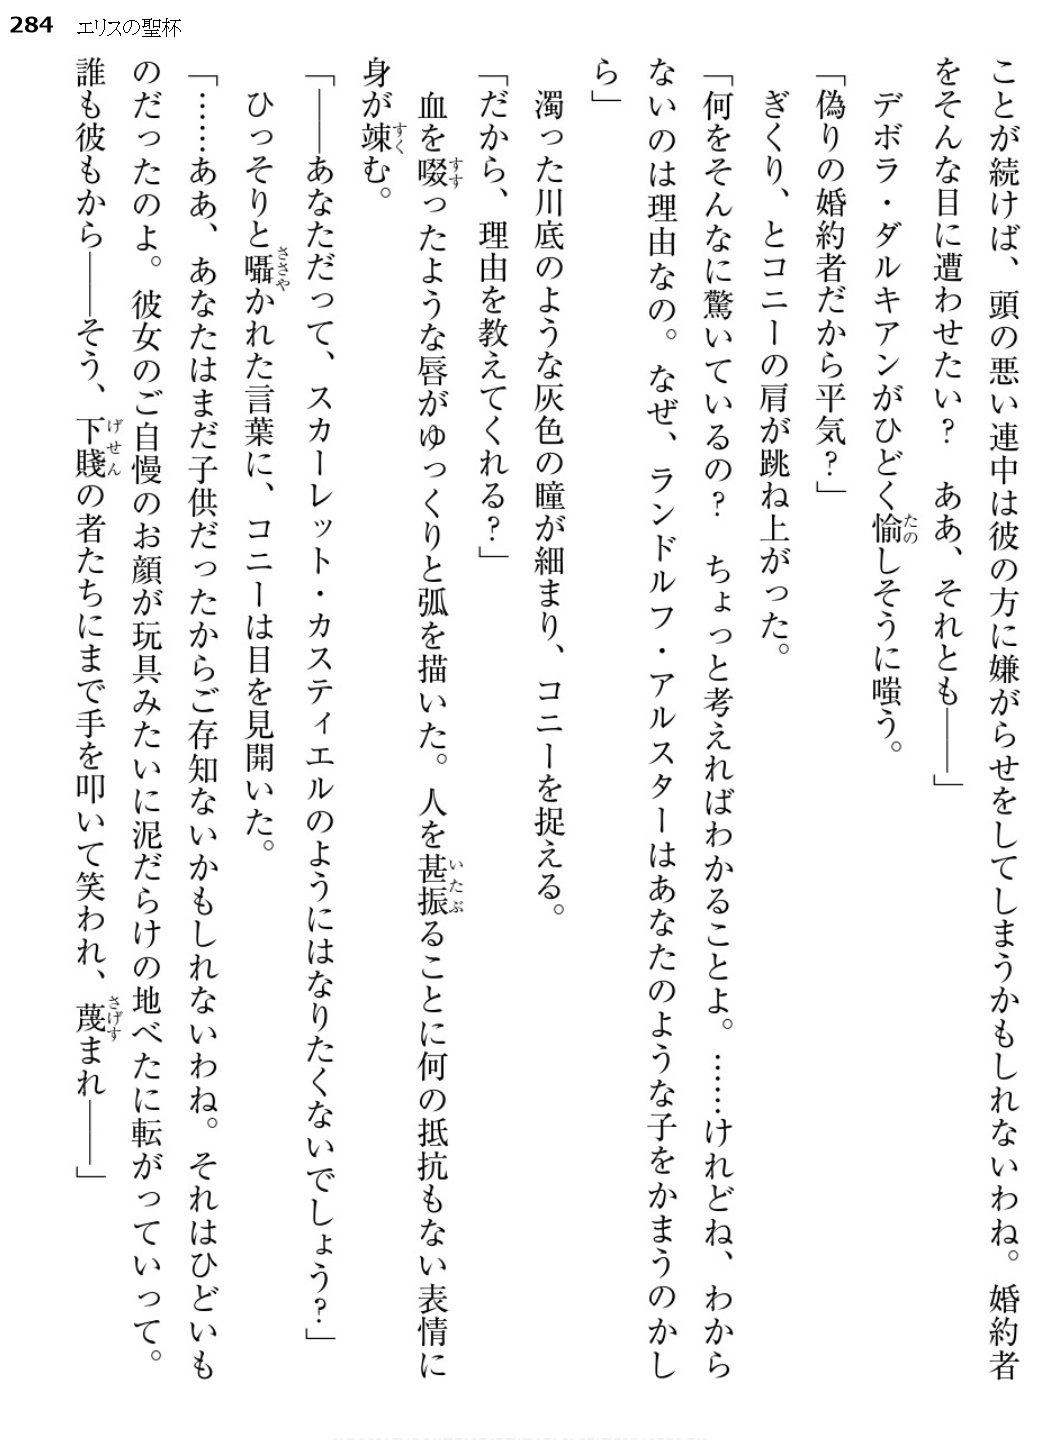 284 エリスの聖杯
ことが続けば、頭の悪い連中は彼の方に嫌がらせをしてしまうかもしれないわね。婚約者
をそんな目に遭わせたい？　ああ、それとも――」
　デボラ・ダルキアンがひどく愉しそうに嗤う。
「偽りの婚約者だから平気？」
　ぎくり、とコニーの肩が跳ね上がった。
「何をそんなに驚いているの？　ちょっと考えればわかることよ。……けれどね、わから
ないのは理由なの。なぜ、ランドルフ・アルスターはあなたのような子をかまうのかし
ら」
　濁った川底のような灰色の瞳が細まり、コニーを捉える。
「だから、理由を教えてくれる？」
　血を啜ったような唇がゆっくりと弧を描いた。人を甚振ることに何の抵抗もない表情に
身が竦む。
「――あなただって、スカーレット・カスティエルのようにはなりたくないでしょう？」
　ひっそりと囁かれた言葉に、コニーは目を見開いた。
「……ああ、あなたはまだ子供だったからご存知ないかもしれないわね。それはひどいも
のだったのよ。彼女のご自慢のお顔が玩具みたいに泥だらけの地べたに転がっていって。
誰も彼もから――そう、下賤の者たちにまで手を叩いて笑われ、蔑まれ――」